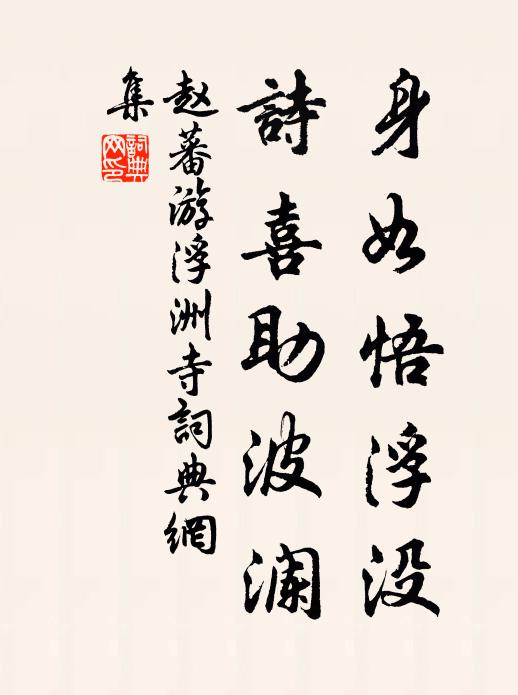 身如悟浮没
詩喜助波澜
赵蕃游浮洲寺詞典網
集
詞典
网印